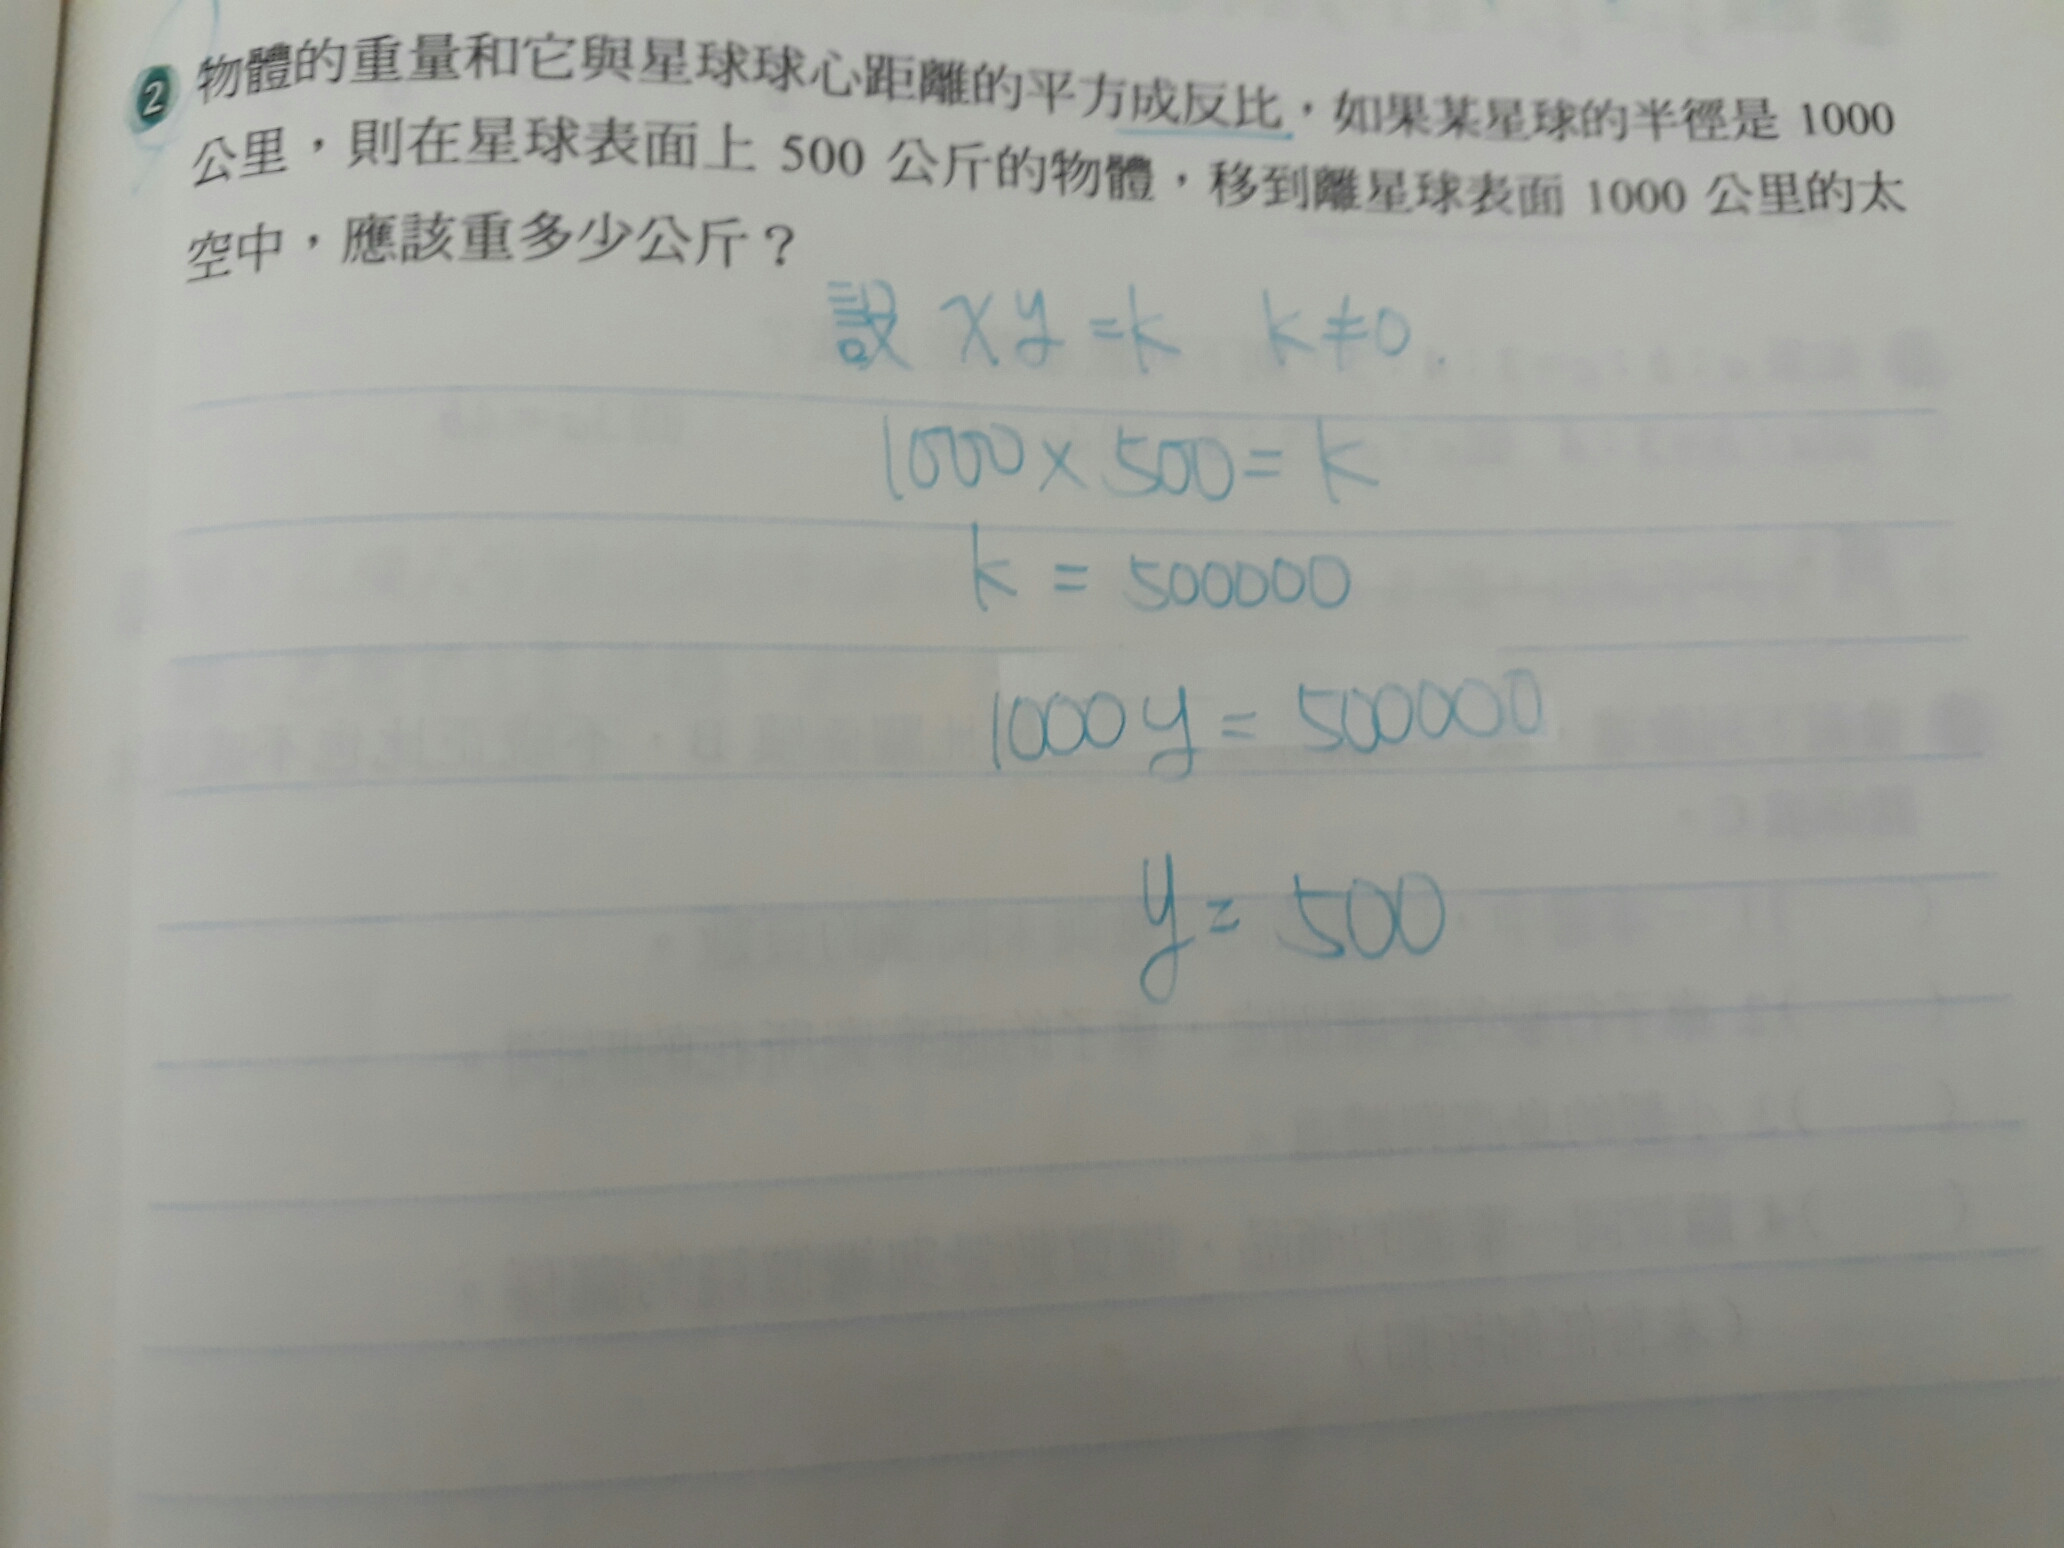 2 物體的重量和它與星球球心距離的平方成反比，如果某星球的半徑是 1000
公里，則在星球表面上 500 公斤的物體，移到離星球表面 1000 公里的太
空中，應該重多少公斤？
設 xy=k k≠0
1000×500=k
k=500000
1000y=500000
y=500